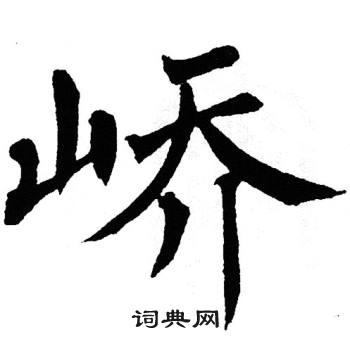 峤
词典网